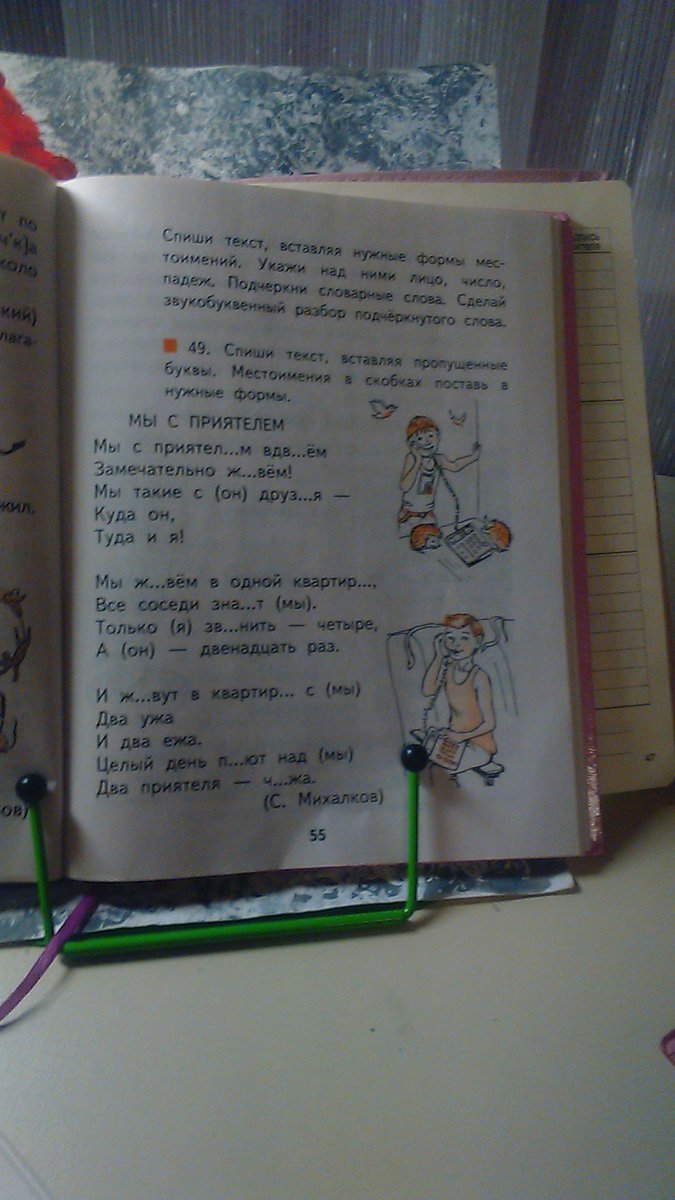 т по
ч'к]а
коло
кий)
лага-
жил.
ов)
Спиши текст, вставляя нужные формы мес-
тоимений. Укажи над ними лицо, число,
падеж. Подчеркни словарные слова. Сделай
звукобуквенный разбор подчёркнутого слова.
49. Спиши текст, вставляя пропущенные
буквы. Местоимения в скобках поставь в
нужные формы.
МЫ С ПРИЯТЕЛЕМ
Мы с приятел...м вдв...ём
Замечательно ж...вём!
Мы такие с (он) друз...я —
Куда он,
Туда и я!
Мы ж...вём в одной квартир...,
Все соседи зна...т (мы).
Только (я) зв...нить — четыре,
А (он) — двенадцать раз.
И ж...вут в квартир... с (мы)
Два ужа
И два ежа.
Целый день п...ют над (мы)
Два приятеля — ч...жа.
(С. Михалков)
55
47